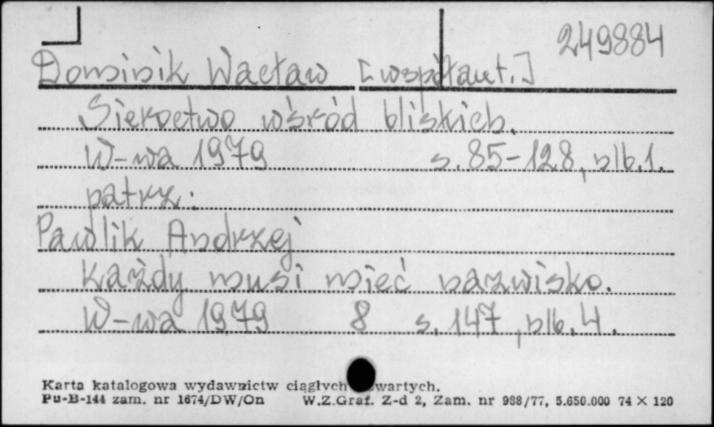 249884
Dominik Wacław [współaut.]
Sieroctwo wśród bliskich.
W-wa 1979 s. 85-128, nlb. 1.
patrz:
Pawlik Andrzej
Każdy musi mieć nazwisko.
W-wa 1979 8 s. 147, nlb. 4.
Karta katalogowa wydawnictw ciągłych wartych.
Pu-B-144 zam. nr 1674/DW/On W.Z.Graf. Z-d 2, Zam. nr 988/77, 5.650.000 74 X 120